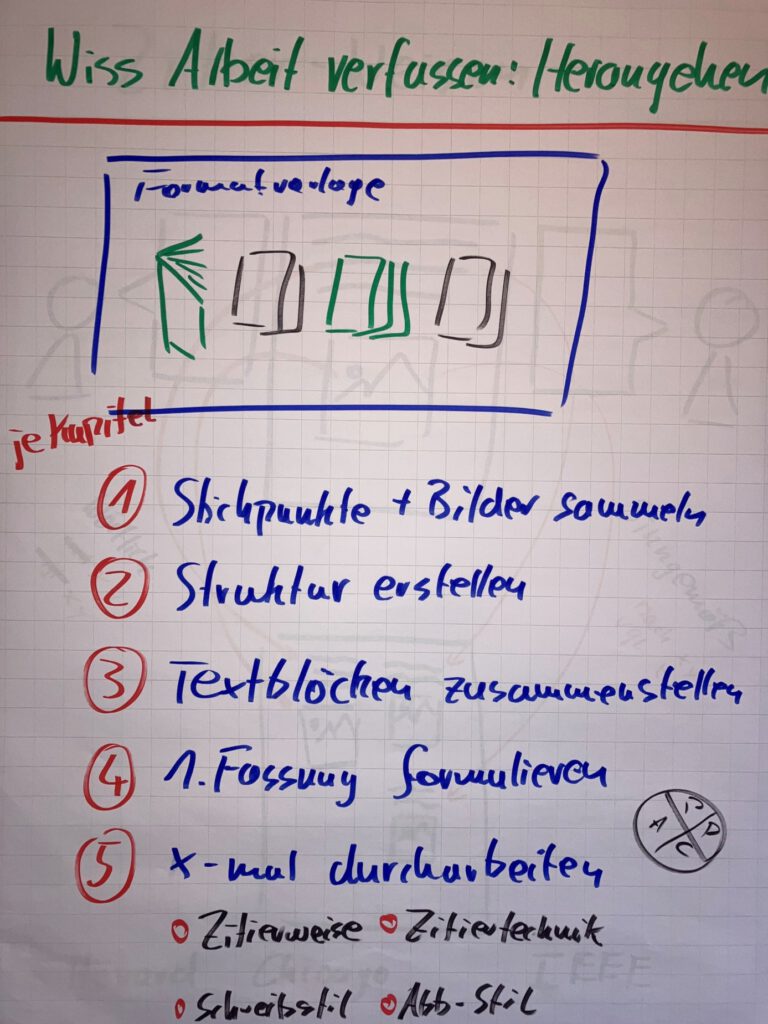 Wiss Arbeit verfassen: Herangehen
Formatvorlage
je Kapitel
1 Stichpunkte + Bilder sammeln
2 Struktur erstellen
3 Textblöcken zusammenstellen
4 1. Fassung formulieren
P D C A
5 x-mal durcharbeiten
Zitierweise Zitiertechnik
Schreibstil Abb-Stil